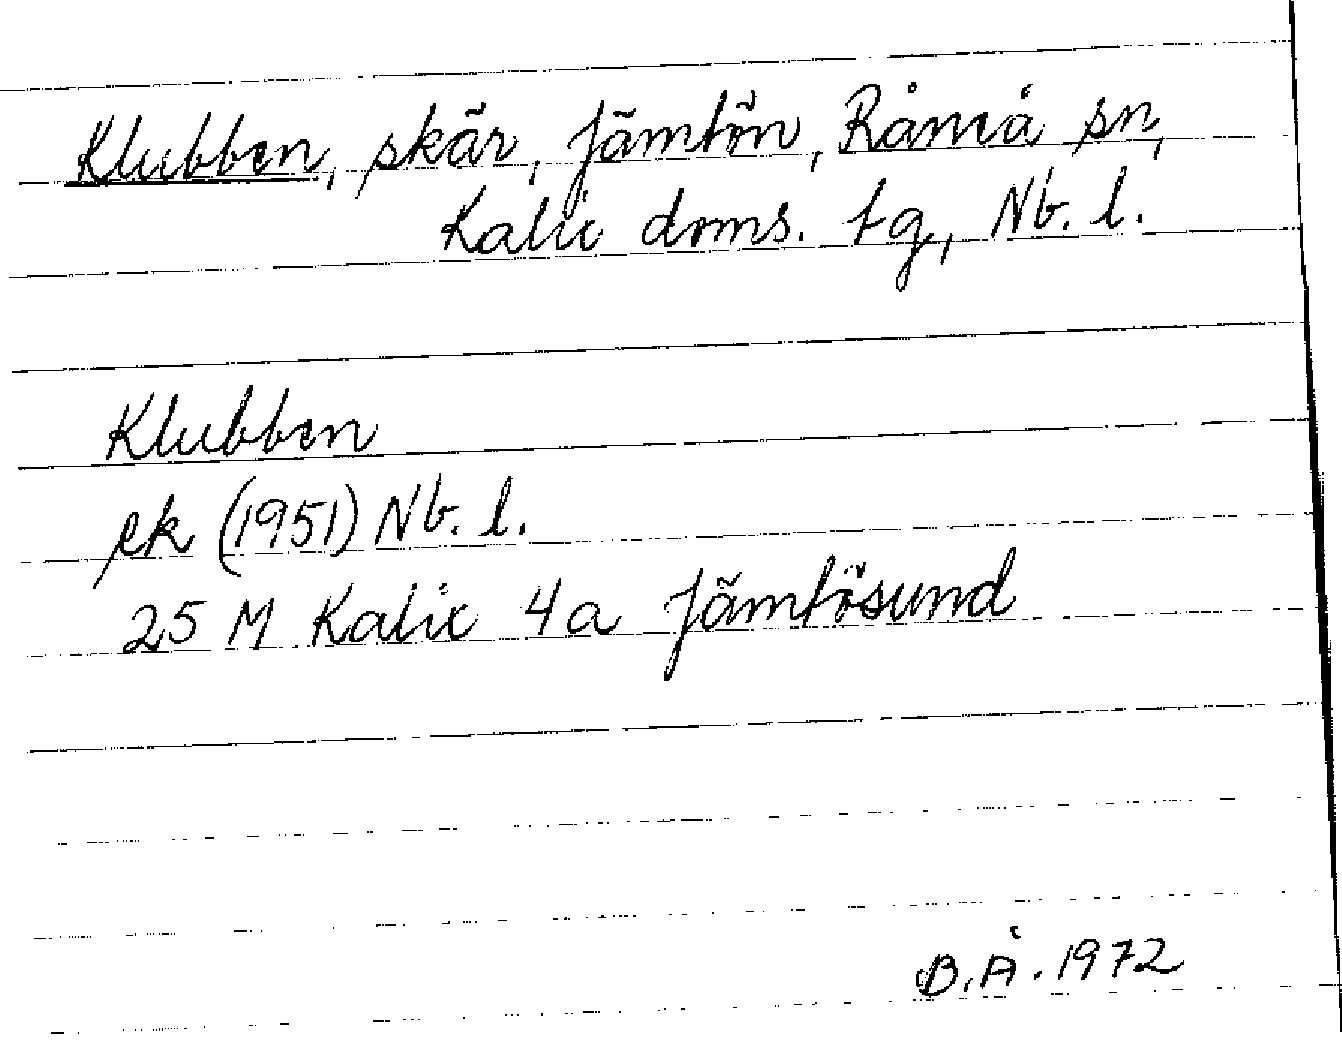 Klubben, skär, Jämtön, Råneå sn,
Kalix doms. tg, Nb. l.
Klubben
ek (1951) Nb. l.
25 M Kalix 4a Jämtösund
B.Å. 1972